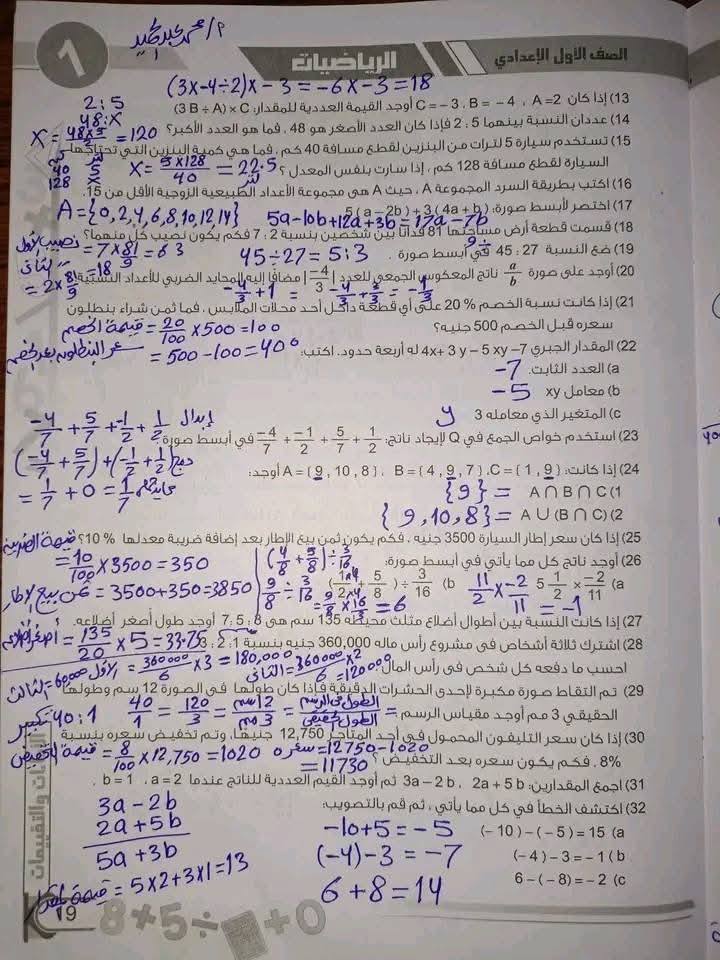 م/ محمد عبد الحميد
1
الصف الأول الإعدادي
الرياضيات
(3x-4÷2)x-3=-6x-3=18
13) إذا كان A=2 ، B = - 4 ، C = - 3 أوجد القيمة العددية للمقدار: (3 B ÷ A) × C
2:5
48:x
14) عددان النسبة بينهما 5 : 2 فإذا كان العدد الأصغر هو 48 ، فما هو العدد الأكبر؟
x = 48×5/2 = 120
15) تستخدم سيارة 5 لترات من البنزين لقطع مسافة 40 كم ، فما هي كمية البنزين التي تحتاجها
السيارة لقطع مسافة 128 كم ، إذا سارت بنفس المعدل ؟
كم لتر
40 5
128 x
x = 5×128/40 = 22.5 لتر
16) اكتب بطريقة السرد المجموعة A ، حيث A هي مجموعة الأعداد الطبيعية الزوجية الأقل من 15.
A={0,2,4,6,8,10,12,14}
17) اختصر لأبسط صورة: 5(a - 2b) + 3(4a + b)
5a-10b+12a+3b=17a-7b
18) قسمت قطعة أرض مساحتها 81 فدانًا بين شخصين بنسبة 2 : 7 فكم يكون نصيب كل منهما؟
نصيب الأول = 7×81/9 = 63
" الثانى = 2×81/9 = 18
19) ضع النسبة 27 : 45 في أبسط صورة .
45÷27 = 5:3
÷9
20) أوجد على صورة a/b ناتج المعكوس الجمعي للعدد |-4/3| مضافًا إليه المحايد الضربي للأعداد النسبية
-4/3+1 = -4/3+3/3 = -1/3
21) إذا كانت نسبة الخصم 20 % على أي قطعة داخل أحد محلات الملابس ، فما ثمن شراء بنطلون
سعره قبل الخصم 500 جنيه؟
قيمة الخصم = 20/100 ×500=100
سعر البنطلون بعد الخصم = 500-100=400
22) المقدار الجبري 4x+ 3 y - 5 xy -7 له أربعة حدود. اكتب:
a) العدد الثابت. -7
b) معامل xy -5
c) المتغير الذي معامله 3 y
23) استخدم خواص الجمع في Q لإيجاد ناتج: 1/2 + 5/7 + -1/2 + -4/7 في أبسط صورة
-4/7 + 5/7 + -1/2 + 1/2 إبدال
(-4/7 + 5/7)+(-1/2+1/2) دمج
= 1/7 + 0 = 1/7
24) إذا كانت: A = { 9 , 10 , 8 } ، B = { 4 , 9 , 7 } ، C = { 1 , 9 } أوجد:
1) A ∩ B ∩ C = {9}
2) A ∪ (B ∩ C) = {9,10,8}
25) إذا كان سعر إطار السيارة 3500 جنيه ، فكم يكون ثمن بيع الإطار بعد إضافة ضريبة معدلها 10 %؟
قيمة الضريبة = 10/100 ×3500=350
ثمن بيع الإطار = 3500+350=3850
26) أوجد ناتج كل مما يأتي في أبسط صورة:
a) 5 1/2 × -2/11
11/2 × -2/11 = -1
b) (1/2 + 5/8) ÷ 3/16
(4/8+5/8)÷3/16
9/8 ÷ 3/16
= 9/8 × 16/3 = 6
27) إذا كانت النسبة بين أطوال أضلاع مثلث محيطه 135 سم هى 8 : 5 : 7 أوجد طول أصغر أضلاعه.
= 135/20 ×5=33.75
28) اشترك ثلاثة أشخاص في مشروع رأس ماله 360,000 جنيه بنسبة 1 : 2 : 3
احسب ما دفعه كل شخص في رأس المال.
الأول = 360000/6 ×3 = 180,000
الثانى = 360000/6 ×2 = 120000
الثالث = 60000
29) تم التقاط صورة مكبرة لإحدى الحشرات الدقيقة فإذا كان طولها في الصورة 12 سم وطولها
الحقيقي 3 مم أوجد مقياس الرسم
= الطول فى الرسم/الطول الحقيقى = 12سم/3مم = 120/3 = 40/1
40:1 تكبير
30) إذا كان سعر التليفون المحمول في أحد المتاجر 12,750 جنيهًا، وتم تخفيض سعره بنسبة
8% . فكم يكون سعره بعد التخفيض؟
قيمة التخفيض = 8/100 ×12,750=1020
سعره =12750-1020
= 11730
31) اجمع المقدارين: 2a + 5b ، 3a - 2b ثم أوجد القيم العددية للناتج عندما a = 2 ، b = 1 .
3a-2b
2a+5b
5a+3b
= 5×2+3×1=13
32) اكتشف الخطأ في كل مما يأتي ، ثم قم بالتصويب:
a) (- 10) - (- 5) = 15
-10+5 = -5
b) (- 4) - 3 = - 1
(-4)-3 = -7
c) 6 - (- 8) = - 2
6+8=14
19